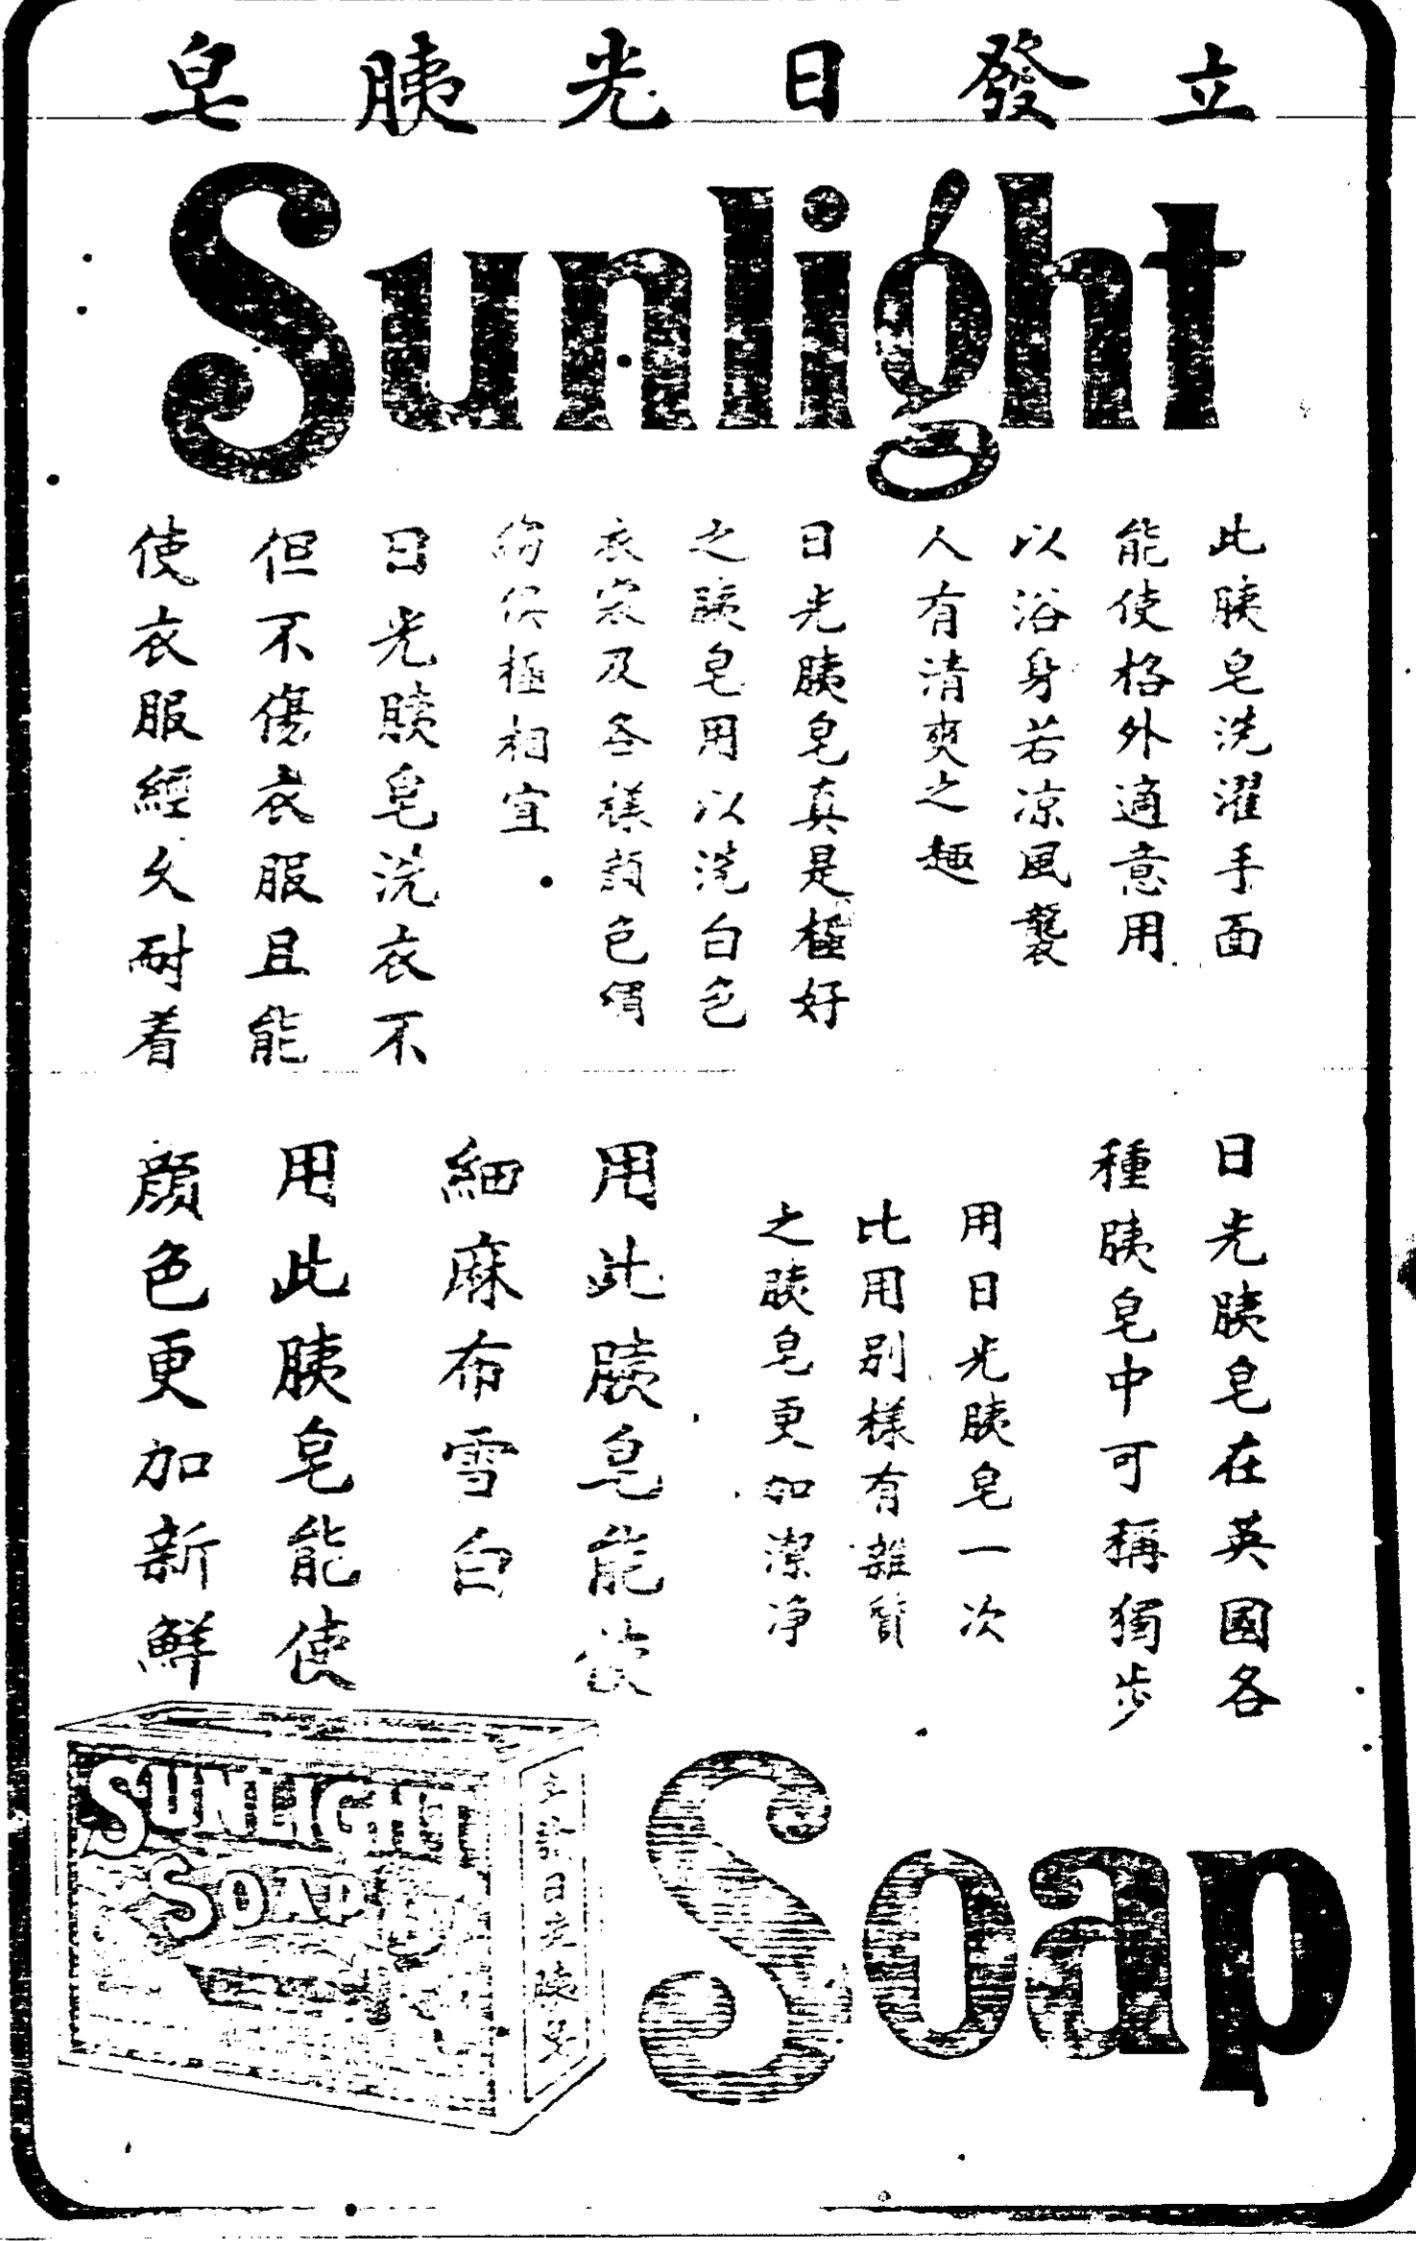 立發日光胰皂
Sunlight
此胰皂洗濯手面
能使格外適意用
以浴身若凉風襲
人有清爽之趣
日光胰皂真是極好
之胰皂用以洗白色
衣裳及各樣顏色綢
極相宜
日光胰皂洗衣不
但不傷衣服且能
使衣服經久耐着
日光胰皂在英國各
種胰皂中可稱獨步
用日光胰皂一次
比用別樣有雜質
之胰皂更加潔净
用此胰皂能使
細麻布雪白
用此胰皂能使
顏色更加新鮮
SUNLIGHT
SOAP
立發日光胰皂
Soap